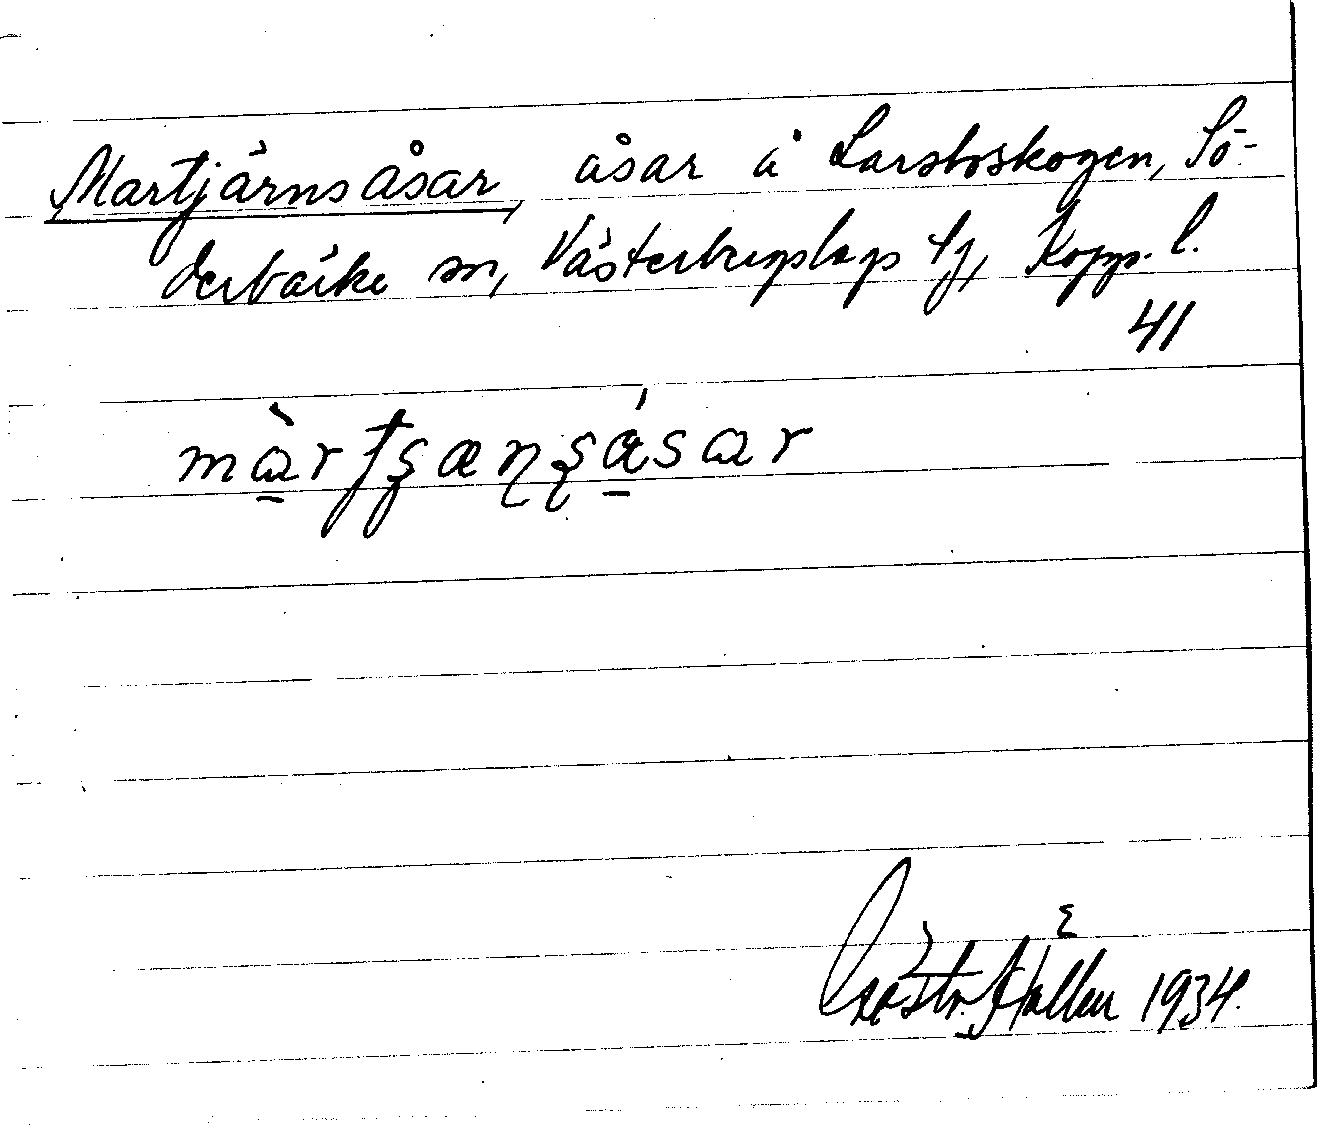 Martjärnsåsar, åsar å Larsboskogen, Sö-
derbärke sn, Västerbergslags tg, Kopp. l.
41
màrtʂæɳʂásar
Gösta Hallén 1934.